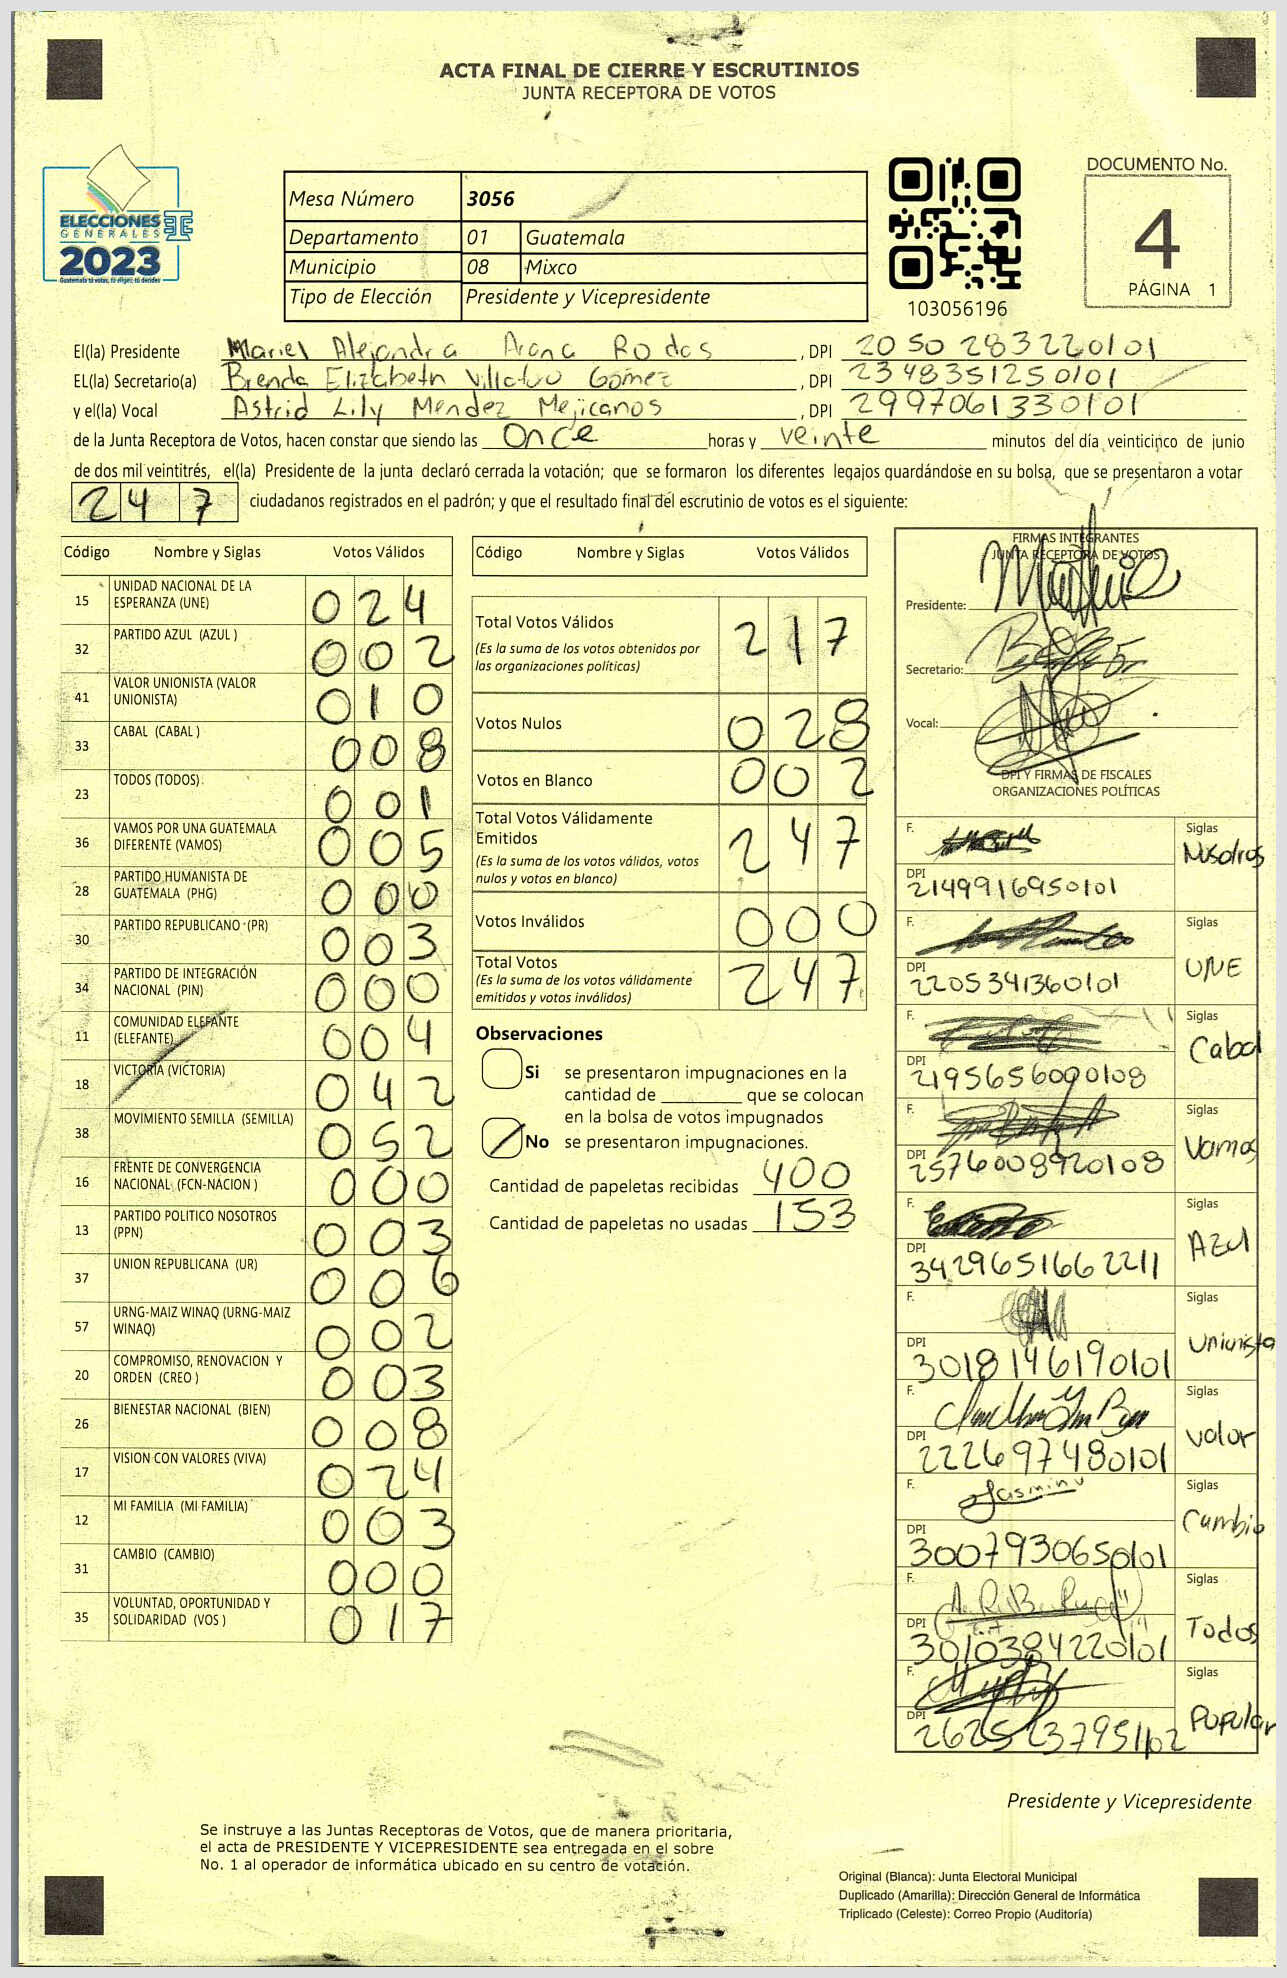 ACTA FINAL DE CIERRE Y ESCRUTINIOS
JUNTA RECEPTORA DE VOTOS
ELECCIONES
GENERALES
2023
Guatemala tú votas, tú eliges, tú decides
Mesa Número 3056
Departamento 01 Guatemala
Municipio 08 Mixco
Tipo de Elección Presidente y Vicepresidente
103056196
DOCUMENTO No.
4
PÁGINA 1
El(la) Presidente Mariel Alejandra Arana Rodas , DPI 2050283220101
EL(la) Secretario(a) Brenda Elizabeth Villatoro Gómez , DPI 2348351250101
y el(la) Vocal Astrid Lily Mendez Mejicanos , DPI 2997061330101
de la Junta Receptora de Votos, hacen constar que siendo las Once horas y veinte minutos del día veinticinco de junio
de dos mil veintitrés, el(la) Presidente de la junta declaró cerrada la votación; que se formaron los diferentes legajos guardándose en su bolsa, que se presentaron a votar
247 ciudadanos registrados en el padrón; y que el resultado final del escrutinio de votos es el siguiente:
Código Nombre y Siglas Votos Válidos
15 UNIDAD NACIONAL DE LA ESPERANZA (UNE) 024
32 PARTIDO AZUL (AZUL ) 002
41 VALOR UNIONISTA (VALOR UNIONISTA) 010
33 CABAL (CABAL ) 008
23 TODOS (TODOS) 001
36 VAMOS POR UNA GUATEMALA DIFERENTE (VAMOS) 005
28 PARTIDO HUMANISTA DE GUATEMALA (PHG) 000
30 PARTIDO REPUBLICANO (PR) 003
34 PARTIDO DE INTEGRACIÓN NACIONAL (PIN) 000
11 COMUNIDAD ELEFANTE (ELEFANTE) 004
18 VICTORIA (VICTORIA) 042
38 MOVIMIENTO SEMILLA (SEMILLA) 052
16 FRENTE DE CONVERGENCIA NACIONAL (FCN-NACION ) 000
13 PARTIDO POLITICO NOSOTROS (PPN) 003
37 UNION REPUBLICANA (UR) 006
57 URNG-MAIZ WINAQ (URNG-MAIZ WINAQ) 002
20 COMPROMISO, RENOVACION Y ORDEN (CREO ) 003
26 BIENESTAR NACIONAL (BIEN) 008
17 VISION CON VALORES (VIVA) 024
12 MI FAMILIA (MI FAMILIA) 003
31 CAMBIO (CAMBIO) 000
35 VOLUNTAD, OPORTUNIDAD Y SOLIDARIDAD (VOS ) 017
Código Nombre y Siglas Votos Válidos
Total Votos Válidos 217
(Es la suma de los votos obtenidos por
las organizaciones políticas)
Votos Nulos 028
Votos en Blanco 002
Total Votos Válidamente
Emitidos 247
(Es la suma de los votos válidos, votos
nulos y votos en blanco)
Votos Inválidos 000
Total Votos 247
(Es la suma de los votos válidamente
emitidos y votos inválidos)
Observaciones
Si se presentaron impugnaciones en la
cantidad de ________ que se colocan
en la bolsa de votos impugnados
No se presentaron impugnaciones.
Cantidad de papeletas recibidas 400
Cantidad de papeletas no usadas 153
FIRMAS INTEGRANTES
JUNTA RECEPTORA DE VOTOS
Presidente:
Secretario:
Vocal:
DPI Y FIRMAS DE FISCALES
ORGANIZACIONES POLÍTICAS
F. Siglas Nosotros
DPI 2149916950101
F. Siglas UNE
DPI 2205341360101
F. Siglas Cabal
DPI 2195656090108
F. Siglas Vamos
DPI 2576008920108
F. Siglas AZUl
DPI 3429651662211
F. Siglas Unionista
DPI 3018146190101
F. Siglas Valor
DPI 222697480101
F. Jasmin Siglas Cambio
DPI 3007930650101
F. Siglas Todos
DPI 3010384220101
F. Siglas Popular
DPI 2625237951102
Presidente y Vicepresidente
Se instruye a las Juntas Receptoras de Votos, que de manera prioritaria,
el acta de PRESIDENTE Y VICEPRESIDENTE sea entregada en el sobre
No. 1 al operador de informática ubicado en su centro de votación.
Original (Blanca): Junta Electoral Municipal
Duplicado (Amarilla): Dirección General de Informática
Triplicado (Celeste): Correo Propio (Auditoría)